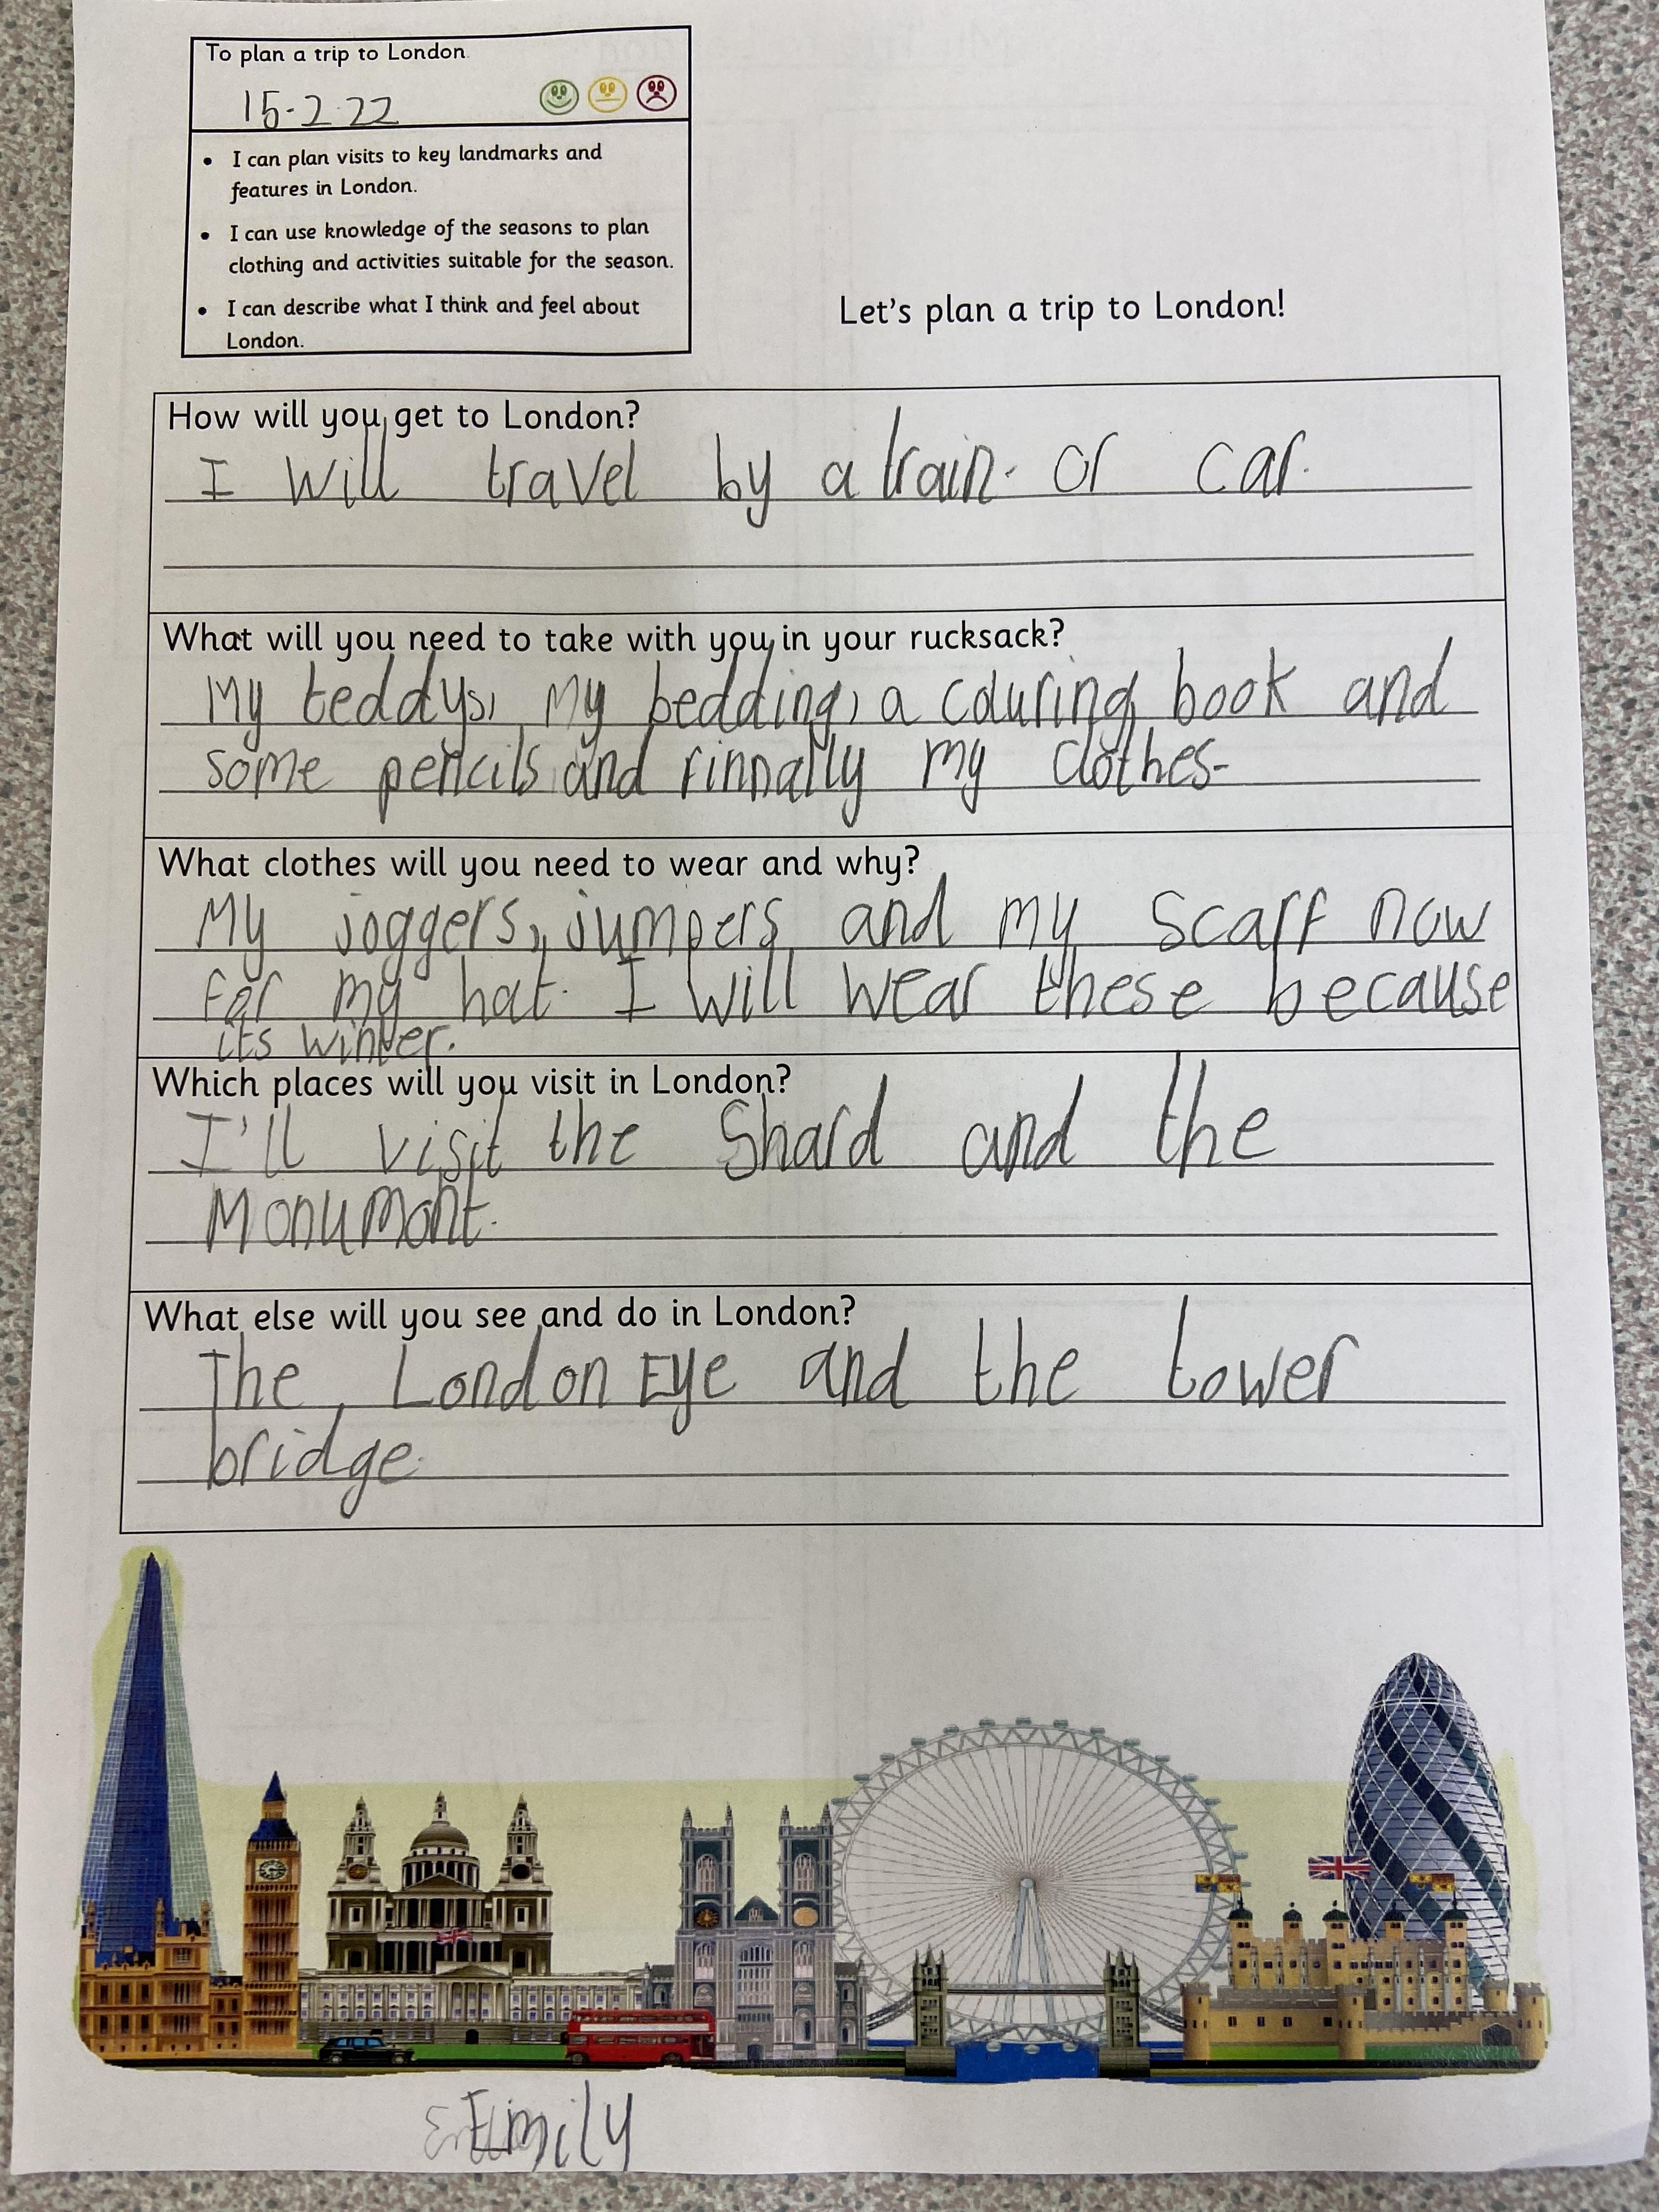 To plan a trip to London.
15-2-22
• I can plan visits to key landmarks and
features in London.
• I can use knowledge of the seasons to plan
clothing and activities suitable for the season.
• I can describe what I think and feel about
London.
Let's plan a trip to London!
How will you get to London?
I will travel by a train. or car.
What will you need to take with you in your rucksack?
My teddys, my bedding, a couring book and
some pencils and finnally my clothes.
What clothes will you need to wear and why?
My joggers, jumpers and my scarf now
for my hat. I will wear these because
its winter.
Which places will you visit in London?
I'll visit the Shard and the
Monumont.
What else will you see and do in London?
The London Eye and the tower
bridge.
Emily